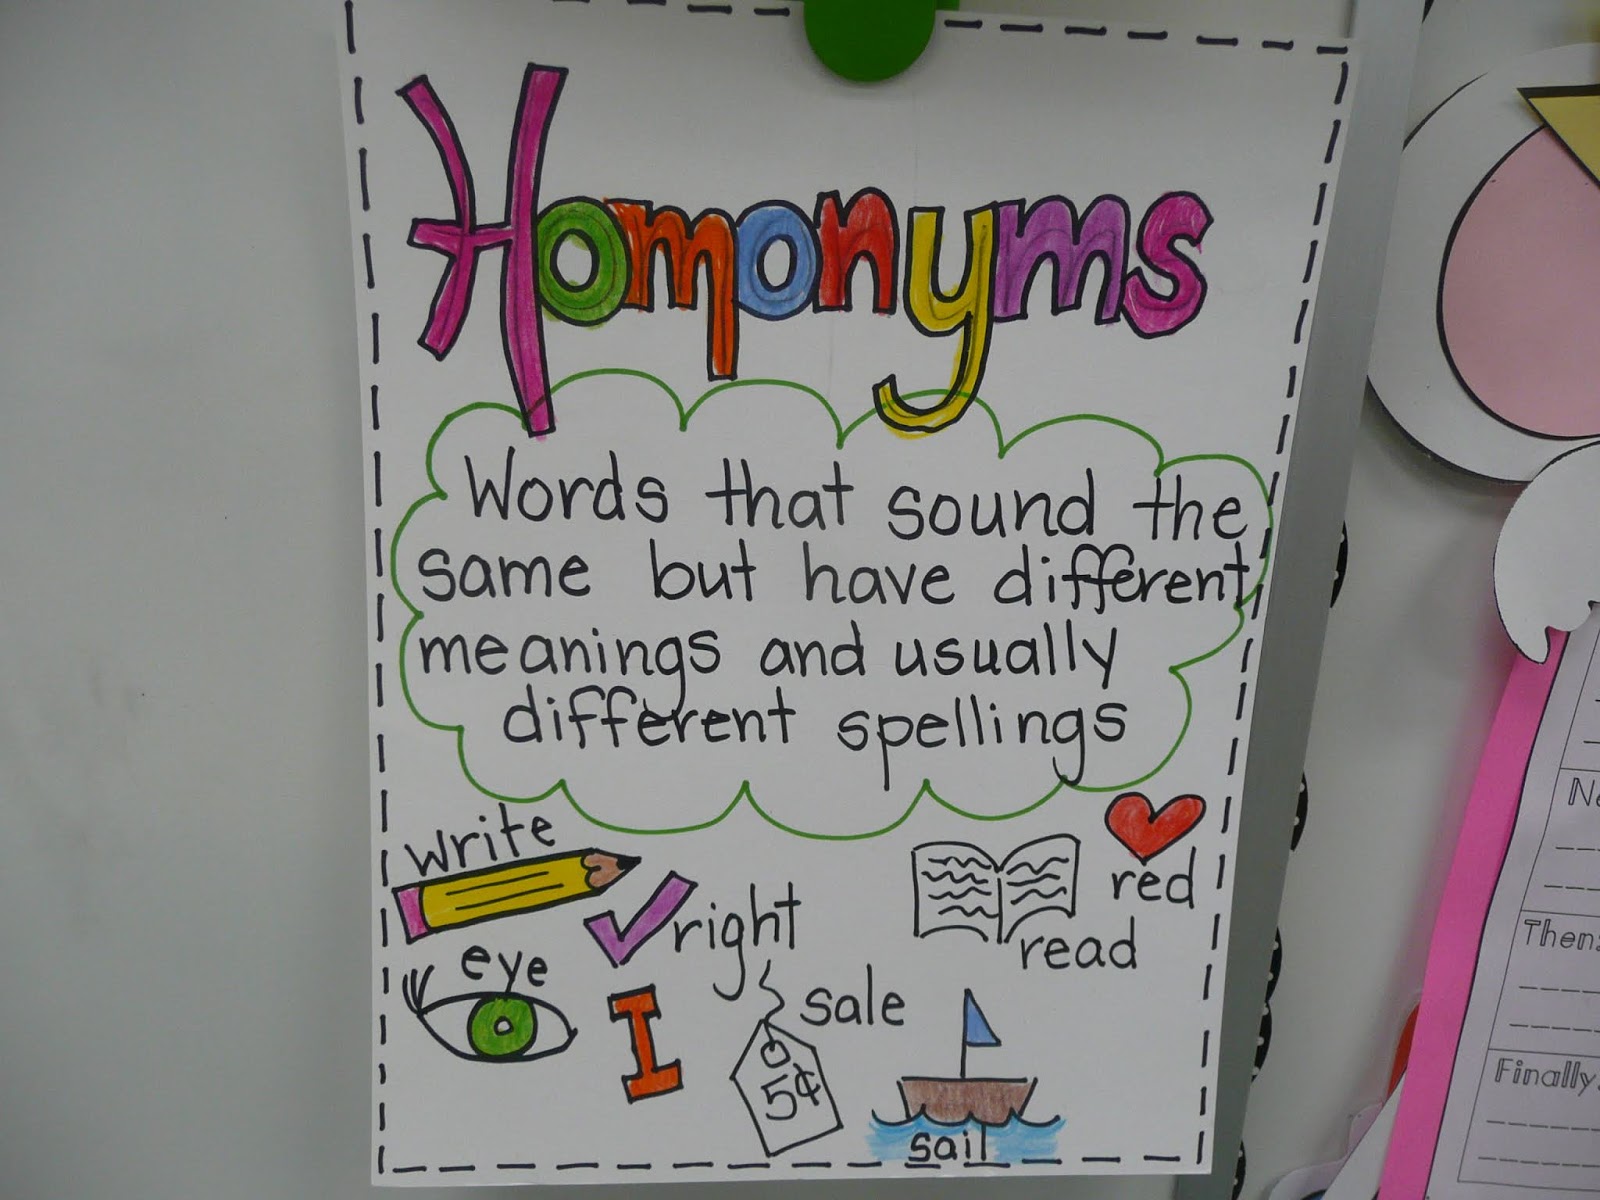 Homonyms
Words that sound the
same but have different
meanings and usually
different spellings
write
right
red
read
eye
I
sale
5¢
sail
Then:
Finally: